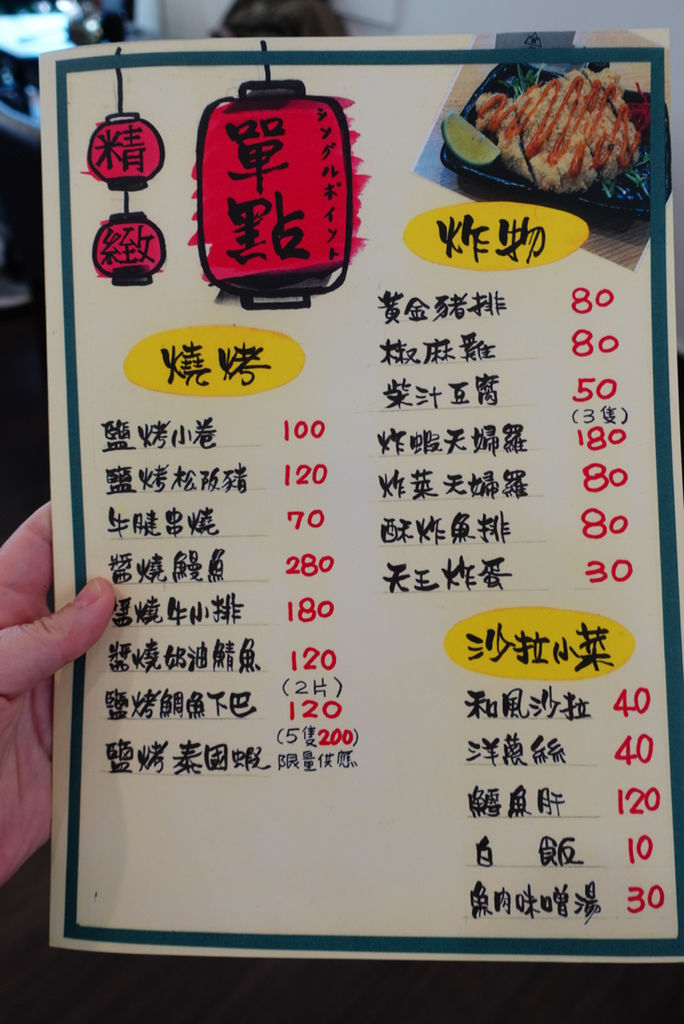 精緻
單點
シングルポイント
燒烤
鹽烤小卷 100
鹽烤松阪豬 120
牛腱串燒 70
醬燒鰻魚 280
醬燒牛小排 180
醬燒奶油鯖魚 120
(2片)
鹽烤鯛魚下巴 120
(5隻200)
鹽烤泰國蝦 限量供應
炸物
黃金豬排 80
椒麻雞 80
柴汁豆腐 50
(3隻)
炸蝦天婦羅 180
炸菜天婦羅 80
酥炸魚排 80
天王炸蛋 30
沙拉小菜
和風沙拉 40
洋蔥絲 40
鱈魚肝 120
白飯 10
魚肉味噌湯 30